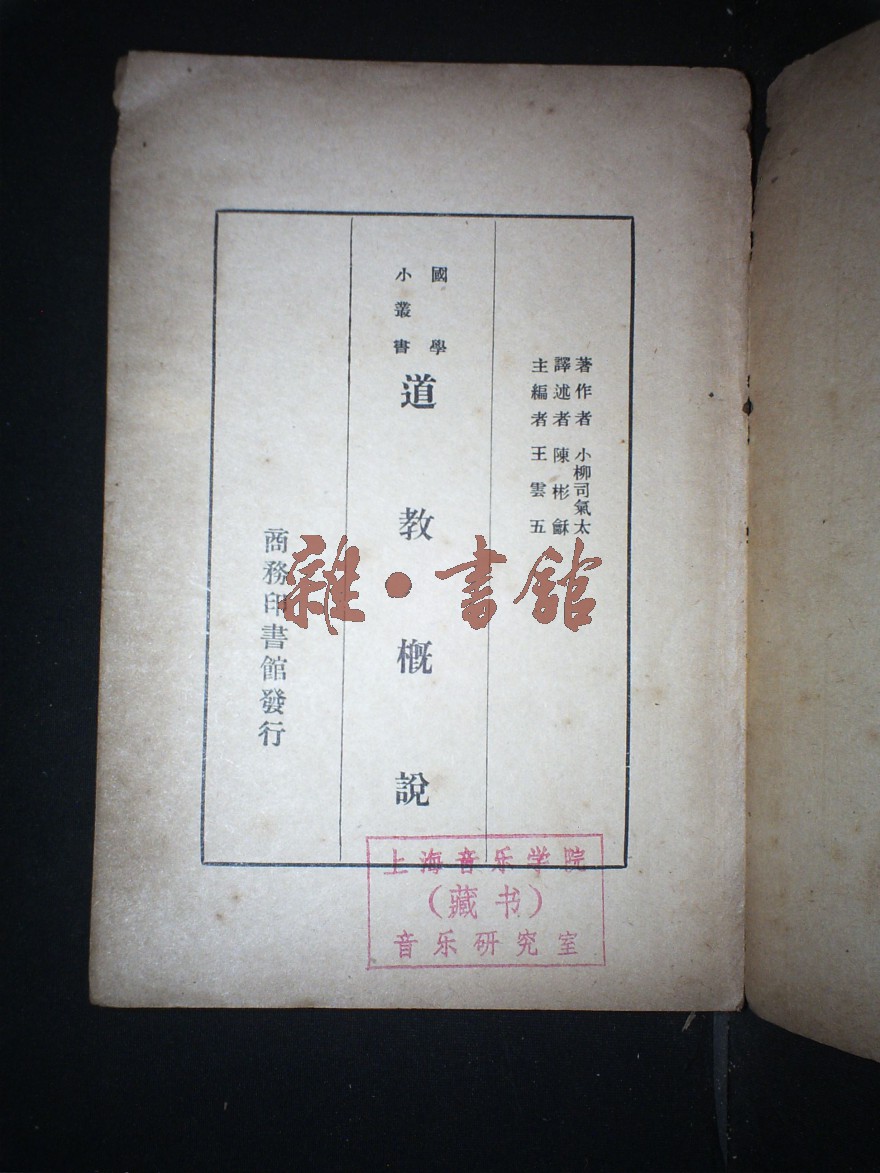 著作者 小柳司氣太
譯述者 陳彬龢
主編者 王雲五
國學
小叢書
道教概說
商務印書館發行
雜·書館
上海音乐学院
（藏书）
音乐研究室